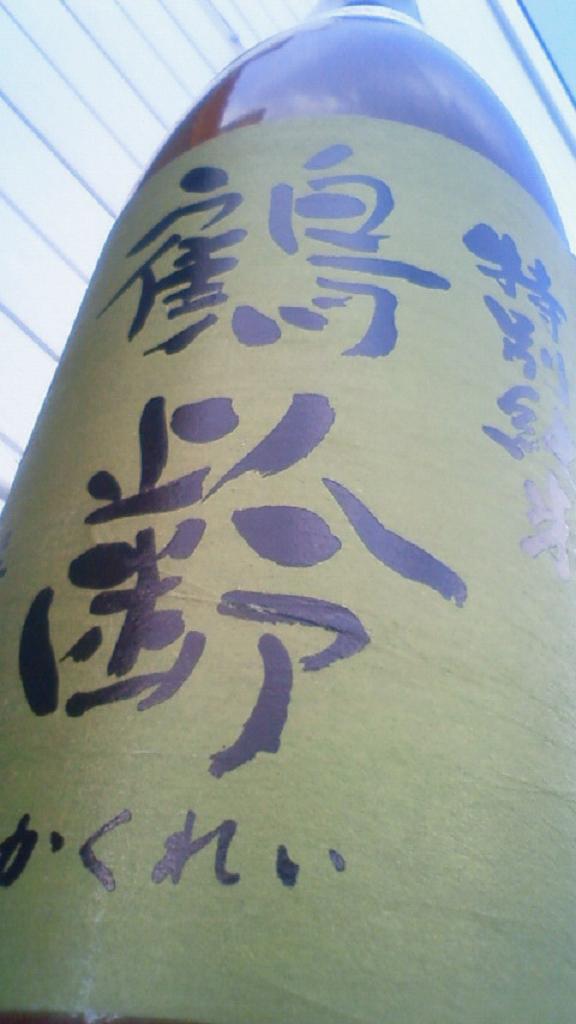 特別純米
鶴齢
かくれい